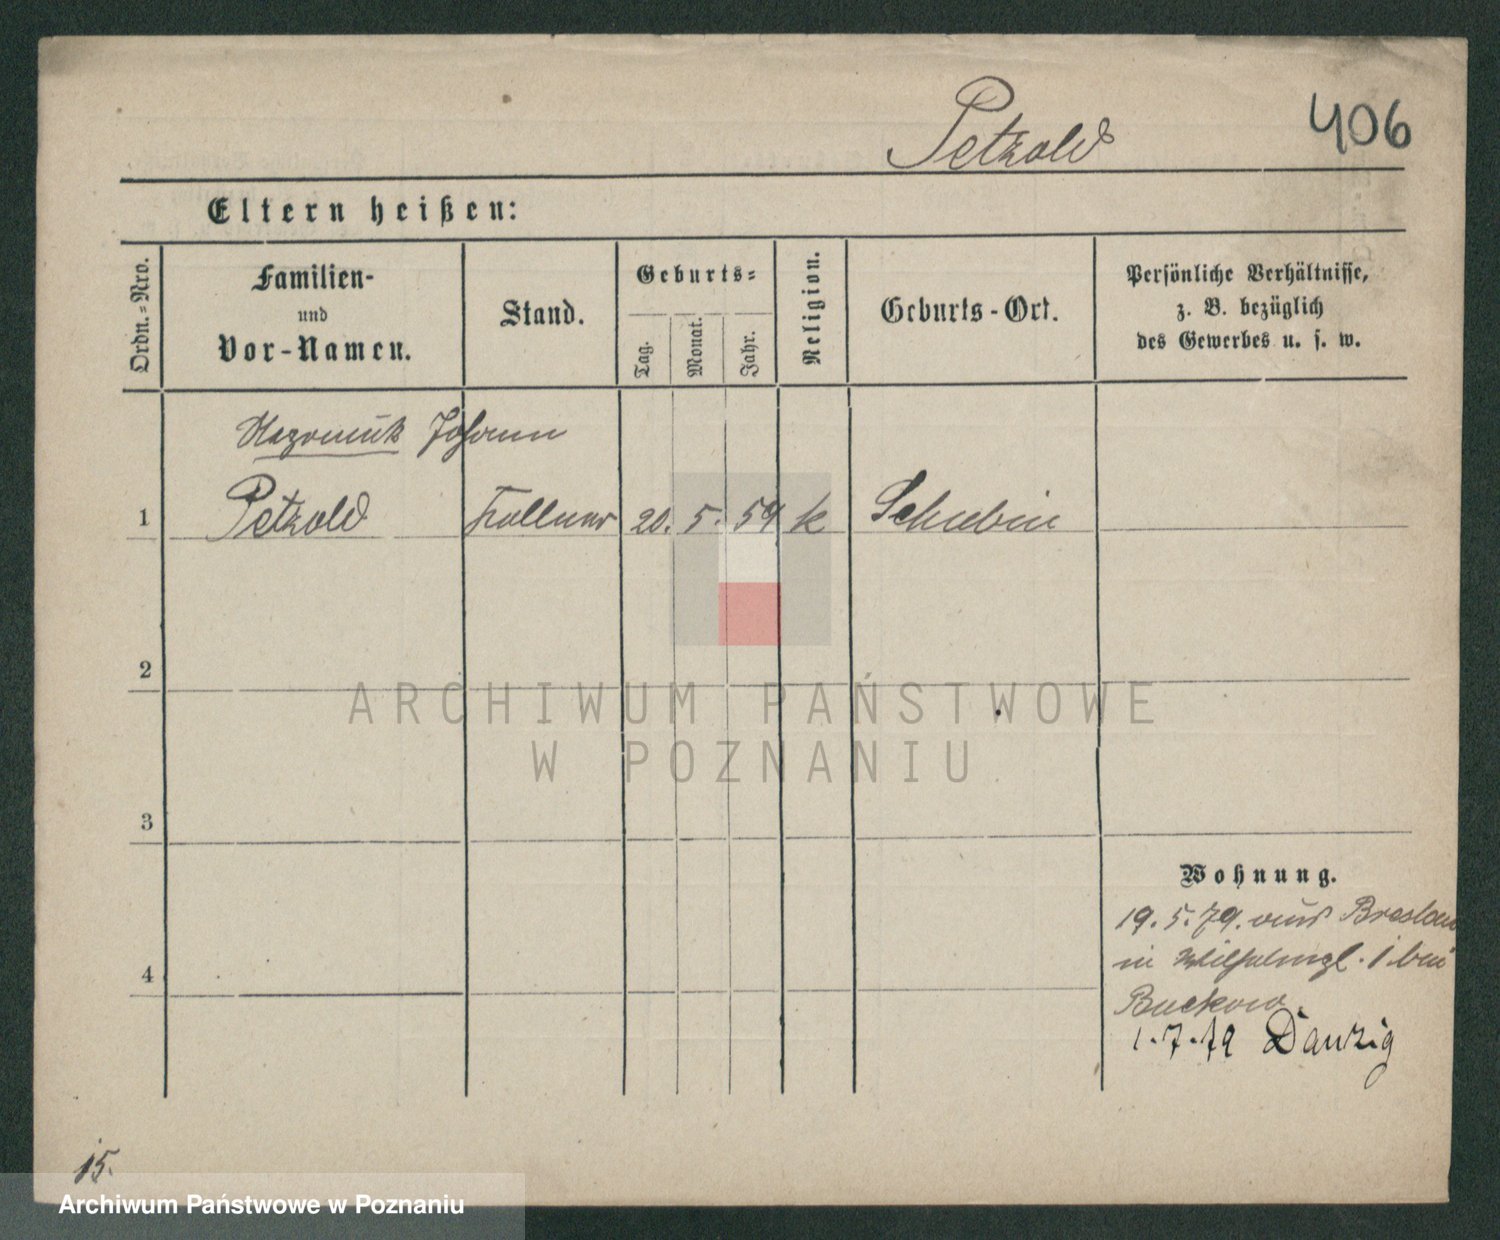 Petzold
406
Eltern heißen:
Ordn.-Nro.
Familien-
und
Vor-Namen.
Stand.
Geburts-
Tag.
Monat.
Jahr.
Religion.
Geburts-Ort.
Persönliche Verhältnisse,
z. B. bezüglich
des Gewerbes u. s. w.
Johann
1 Petzold Kellner 20. 5. 59 k Schubin
2
ARCHIWUM PAŃSTWOWE
W POZNANIU
3
Wohnung.
19. 5. 79. aus Breslau
in Wilhelmspl. 1 bei
4
Buckow.
1.7.79 Danzig
15.
Archiwum Państwowe w Poznaniu